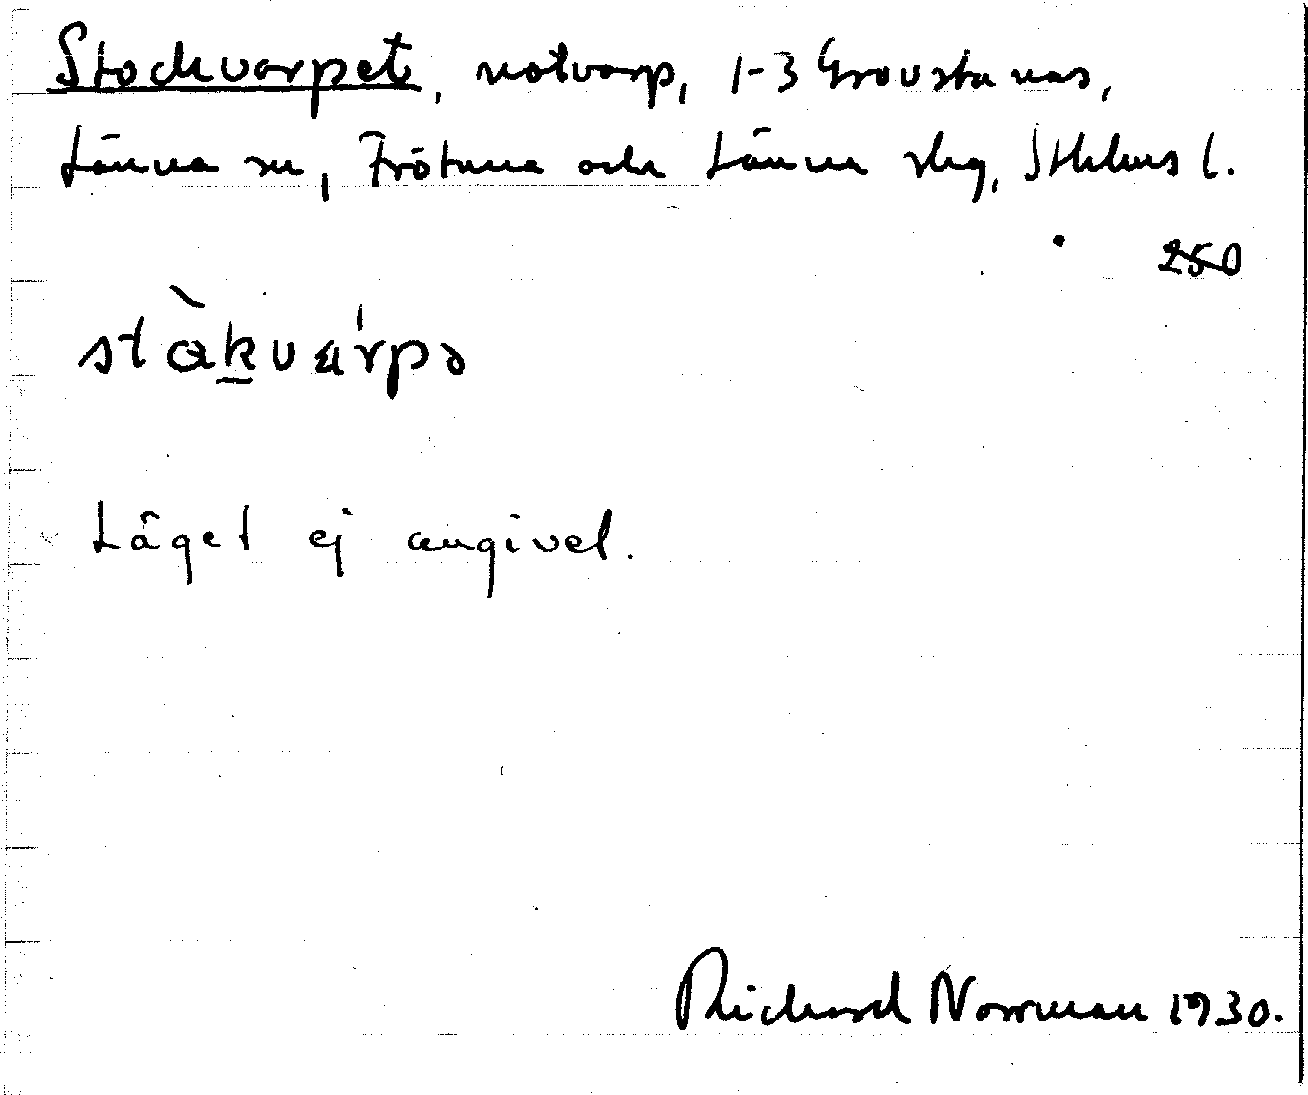 Stockvarpet, notvarp, 1-3 Grovstanäs,
Länna sn, Frötuna och Länna skg, Sthlms l.
250
stàkvárpə
Läget ej angivet.
Richard Norrman 1930.